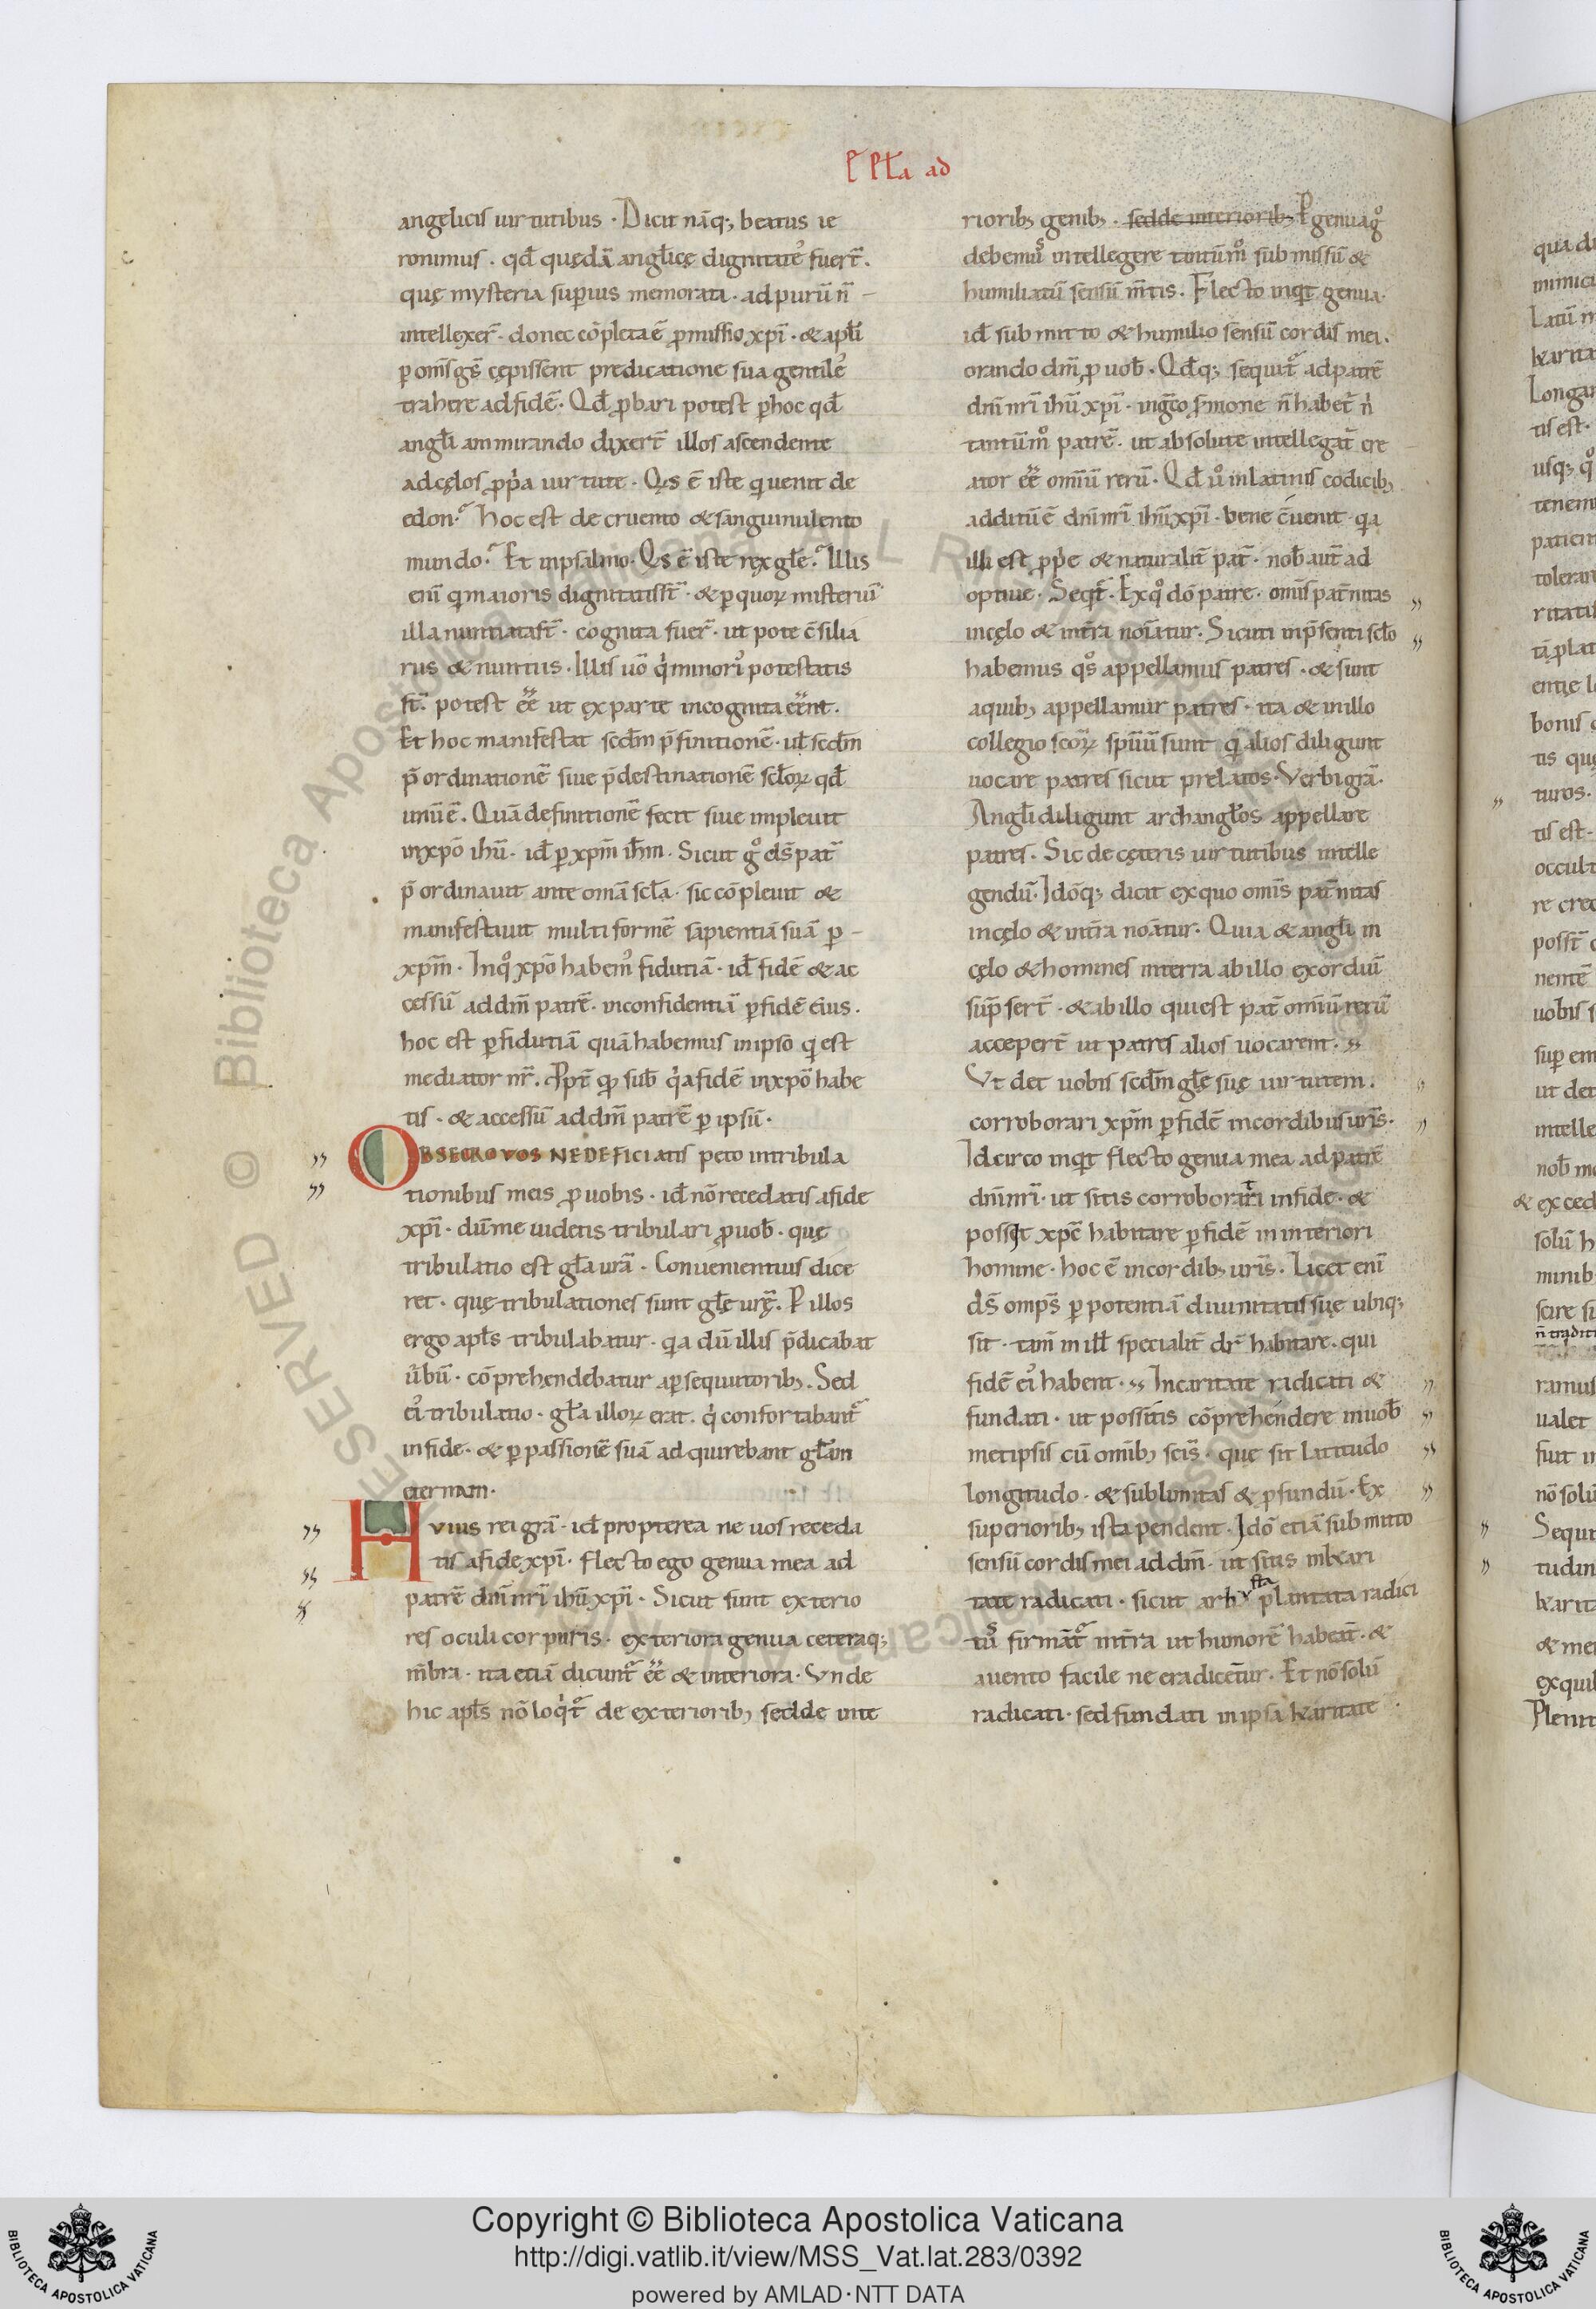 p̄ Ep̄ła ad
angelicis uirtutibus · Dicit nāq; beatus ie
ronimus · qđ quędā anglicę dignitateˀ fuert̄ ·
quę mysteria superius memorata · ad purū n̄
intellexer̄ · donec cōpleta ē ꝓmissio xp̄i · & apłi
ꝑ om̄s gs̄ cępissent predicatione sua gentileˀ
trahere ad fidē · Qđ ꝓbari potest ꝑ hoc qđ
angłi ammirando dixert̄ illos ascendente
ad cęlos ꝓpa uirtute · Qs ē iste qui uenit de
edon · Hoc est de cruento & sanguinulento
mundo · Et in psalmo · Qs ē iste rex głe · Illis
eni qui maioris dignitatis st̄ · & ꝑ quoꝝ misteriū
illa nuntiata st̄ · cognita fuer̄ · ut pote c̄silia
rus & nuntius · Illis uō qi minorˀ potestatis
st̄ · potest eē ut ex parte incognita eēnt ·
Et hoc manifestat scd̄m p̄finitionē · uł scd̄m
p̄ordinationē siue p̄destinationē scłoꝝ qđ
unū ē · Quā definitionē fecit siue impleuit
in xp̄o ihū · id ꝑ xp̄m ih̄m · Sicut gͦ ds̄ pat̄
p̄ordinauit ante omā scła · sic cōpleuit &
manifestauit multiformē sapientiā suā ꝑ
xp̄m · In qͦ xp̄o habemˀ fidutiā · id fidē & ac
cessū ad dm̄ patrē · in confidentiā ꝑ fidē eius ·
hoc est ꝑ fidutiā quā habemus in ipso qui est
mediator nr̄ · quia fidē in xp̄o habe
tis · & accessū ad dm̄ patrē ꝑ ipsū ·
OBSECRO VOS NE DEFICIatis peto in tribula
tionibus meis ꝓ uobis · id nō recedatis a fide
xp̄i · dū me uidetis tribulari ꝓ uob̄ · quę
tribulatio est gła urā · Conuenientius dice
ret · quę tribulationes sunt głę urę · P illos
ergo apłs tribulabatur · qa dū illis p̄dicabat
ūbū · cōprehendebatur a ꝑsequutorib; · Sed
eiˀ tribulatio · gła illoꝝ erat · qi confortabant̄
in fide · & ꝑ passionē suā adquirebant głam
eternam ·
HVIVS rei grā · id propterea ne uos receda
tis a fide xp̄i · flecto ego genua mea ad
patrē dn̄i nr̄i ihū xp̄i · Sicut sunt exterio
res oculi corporis · exteriora genua ceteraq;
m̄bra · ita etiā dicunt̄ eē & interiora · Vnde
hic apłs nō loqit̄ de exteriorib; sed de inte
riorib; genib; · sed de interiorib; P genua gͦ
debemus intellegere tantūmͦ submissū &
humiliatū sensū m̄tis · Flecto inqt genua ·
id submitto & humilio sensū cordis mei ·
orando dm̄ ꝓ uob̄ · Qđq; sequit̄ ad patrē
dn̄i nr̄i ihū xp̄i · in gͨo sermone n̄ habet̄ ni
tantūmͦ patrē · ut absolute intellegat̄ cre
ator eē omniū rerū · Qđ uͦ in latinis codicib;
additū ē dn̄i nr̄i ihū xp̄i · bene c̄uenit · qa
illi est ꝓpe & naturalit̄ pat̄ · nob̄ aut̄ ad
optiue · Seqt̄ · Ex qͦ dō patre · omīs pat̄nitas
in cęlo & in t̄ra noīatur · Sicuti in p̄senti scło
habemus qͦs appellamus patres · & sunt
a quib; appellamur patres · ita & in illo
collegio scoꝝ spirituū sunt qui alios diligunt
uocare patres sicut prelatos · Verbi grā ·
Angłi diligunt archangłos appellare
patres · Sic de cęteris uirtutibus intelle
gendū · Idōq; dicit ex quo omīs pat̄nitas
in cęlo & in t̄ra noātur · Quia & angłi in
cęlo & homines in terra ab illo exordiū
sūpsert̄ · & ab illo qui est pat̄ omniū rerū
accepert̄ ut patres alios uocarent ·
Vt det uobis scd̄m głę suę uirtutem ·
corroborari xp̄m ꝑ fidē in cordibus uris ·
Idcirco inqt flecto genua mea ad patrē
dn̄i nr̄i · ut sitis corroborati in fide · &
possit xp̄c habitare ꝑ fidē in interiori
homine · hoc ē in cordib; uris · Licet eni
ds̄ omps̄ ꝑ potentiā diuinitatis suę ubiq;
sit · tam̄ in ill specialit̄ dr̄ habitare · qui
fidē eiˀ habent · In caritate radicati &
fundati · ut possitis cōprehendere in uob̄
metipsis cū omib; scis · quę sit latitudo
longitudo · & sublimitas & ꝓfundū · Ex
superiorib; ista pendent · Idō etiā submitto
sensū cordis mei ad dm̄ · ut sitis in kari
tate radicati · sicut arbusta plantata radici
tus firmāt̄ in t̄ra ut humorē habeat̄ · &
a uento facile ne eradicetur · Et nō solū
radicati · sed fundati in ipsa karitate ·
Copyright © Biblioteca Apostolica Vaticana
http://digi.vatlib.it/view/MSS_Vat.lat.283/0392
powered by AMLAD·NTT DATA
BIBLIOTECA APOSTOLICA VATICANA
BIBLIOTECA APOSTOLICA VATICANA